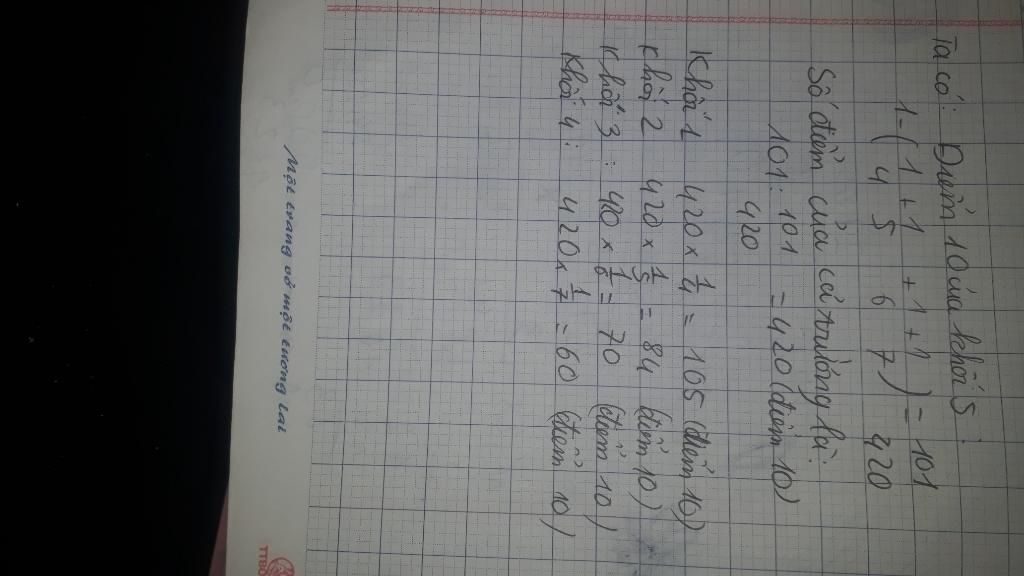 Ta có: Điểm 10 của khối 5:
1 - ( 1/4 + 1/5 + 1/6 + 1/7 ) = 101/420
Số điểm của cả trường là:
101 : 101/420 = 420 (điểm 10)
Khối 1 420 × 1/4 = 105 (điểm 10)
Khối 2 420 × 1/5 = 84 (điểm 10)
Khối 3 : 420 × 1/6 = 70 (điểm 10)
Khối 4 : 420 × 1/7 = 60 (điểm 10)
Một trang vở một tương lai
TTBO